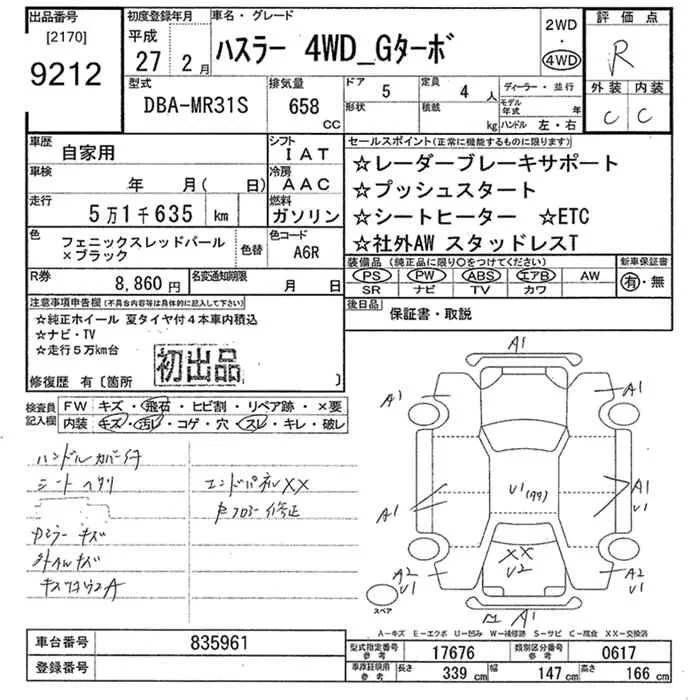 出品番号
[2170]
9212
初度登録年月
平成
27 2月
車名・グレード
ハスラー 4WD_Gターボ
2WD
・
4WD
評価点
R
外装 内装
C C
型式
DBA-MR31S
排気量
658
CC
ドア
5
形状
定員
4 人
積載
kg
ディーラー・並行
モデル年式 年
ハンドル 左・右
車歴
自家用
シフト
IAT
車検
年 月( 日)
冷房
AAC
走行
5万1千635 km
燃料
ガソリン
色
フェニックスレッドパール
×ブラック
色替
色コード
A6R
R券
8,860円
名変通知期限
月 日
セールスポイント(正常に機能するものに限ります)
☆レーダーブレーキサポート
☆プッシュスタート
☆シートヒーター ☆ETC
☆社外AW スタッドレスT
装備品(純正品に限り○をつけてください)
PS PW ABS エアB AW
SR ナビ TV カワ
新車保証書
有・無
後日品
保証書・取説
注意事項申告欄(不具合内容等は具体的に記入して下さい)
☆純正ホイール 夏タイヤ付4本車内積込
☆ナビ・TV
☆走行5万km台
初出品
修復歴 有〔箇所 〕
検査員記入欄
FW キズ・飛石・ヒビ割・リペア跡・×要
内装 キズ・汚レ・コゲ・穴・スレ・キレ・破レ
ハンドルカバー付
シートヘタリ
エンドパネルXX
Rフロアー修正
ドアミラーキズ
外アルミキズ
A1
A1
A1
U1(99)
A1
A1
U1
XX
U2
A2
U1
A2
U1
A1
スペア
A-キズ E-エクボ U-凹み W-補修跡 S-サビ C-腐食 XX-交換済
車台番号
835961
登録番号
型式指定番号
参考
17676
類別区分番号
参考
0617
車庫証明用
参考
長さ 339 cm 幅 147 cm 高さ 166 cm